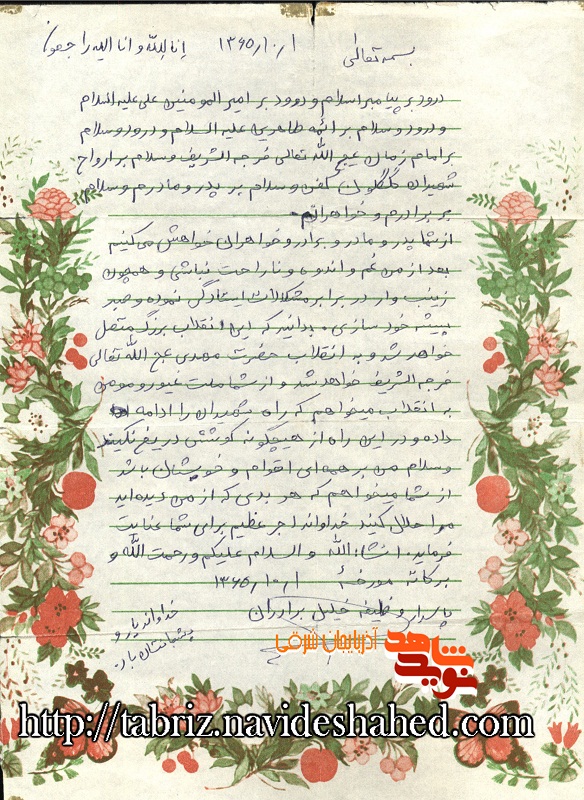 بسمه تعالی    ۱۳۶۵/۱۰/۱    انا لله و انا الیه راجعون
درود بر پیامبر اسلام و درود بر امیر المومنین علی علیه السلام
و درود و سلام بر ائمه طاهرین علیه السلام و درود و سلام
بر امام زمان عج الله تعالی فرجه الشریف و سلام بر ارواح
شهیدان گلگون کفن و سلام بر پدر و مادرم و سلام
بر برادرم و خواهرانم
از شما پدر و مادر و برادر و خواهران خواهش می کنیم
بعد از من غم و اندوه و ناراحت نباشی و همچون
زینب وار در برابر مشکلات ایستادگی نموده و صبر
پیشه خود سازی. بدانید که این انقلاب بزرگ متصل
خواهد شد و به انقلاب حضرت مهدی عج الله تعالی
فرجه الشریف خواهد شد و از شما ملت غیور و مومن
به انقلاب میخواهم که راه شهیدان را ادامه
داده و در این راه از هیچگونه کوشش دریغ نکنید
و سلام من بر همه ای اقوام و خویشان باشد
از شما میخواهم که هر بدی که از من دیده اید
مرا حلال کنید خداوند اجر عظیم برای شما عنایت
فرماید. انشاالله والسلام علیکم و رحمت الله و
برکاته مورخهٔ ۱۳۶۵/۱۰/۱
پاسدار وظیفه خلیل برادران
خداوند یار و
پشیبانتان باد.
نوید شاهد آذربایجان شرقی
http://tabriz.navideshahed.com